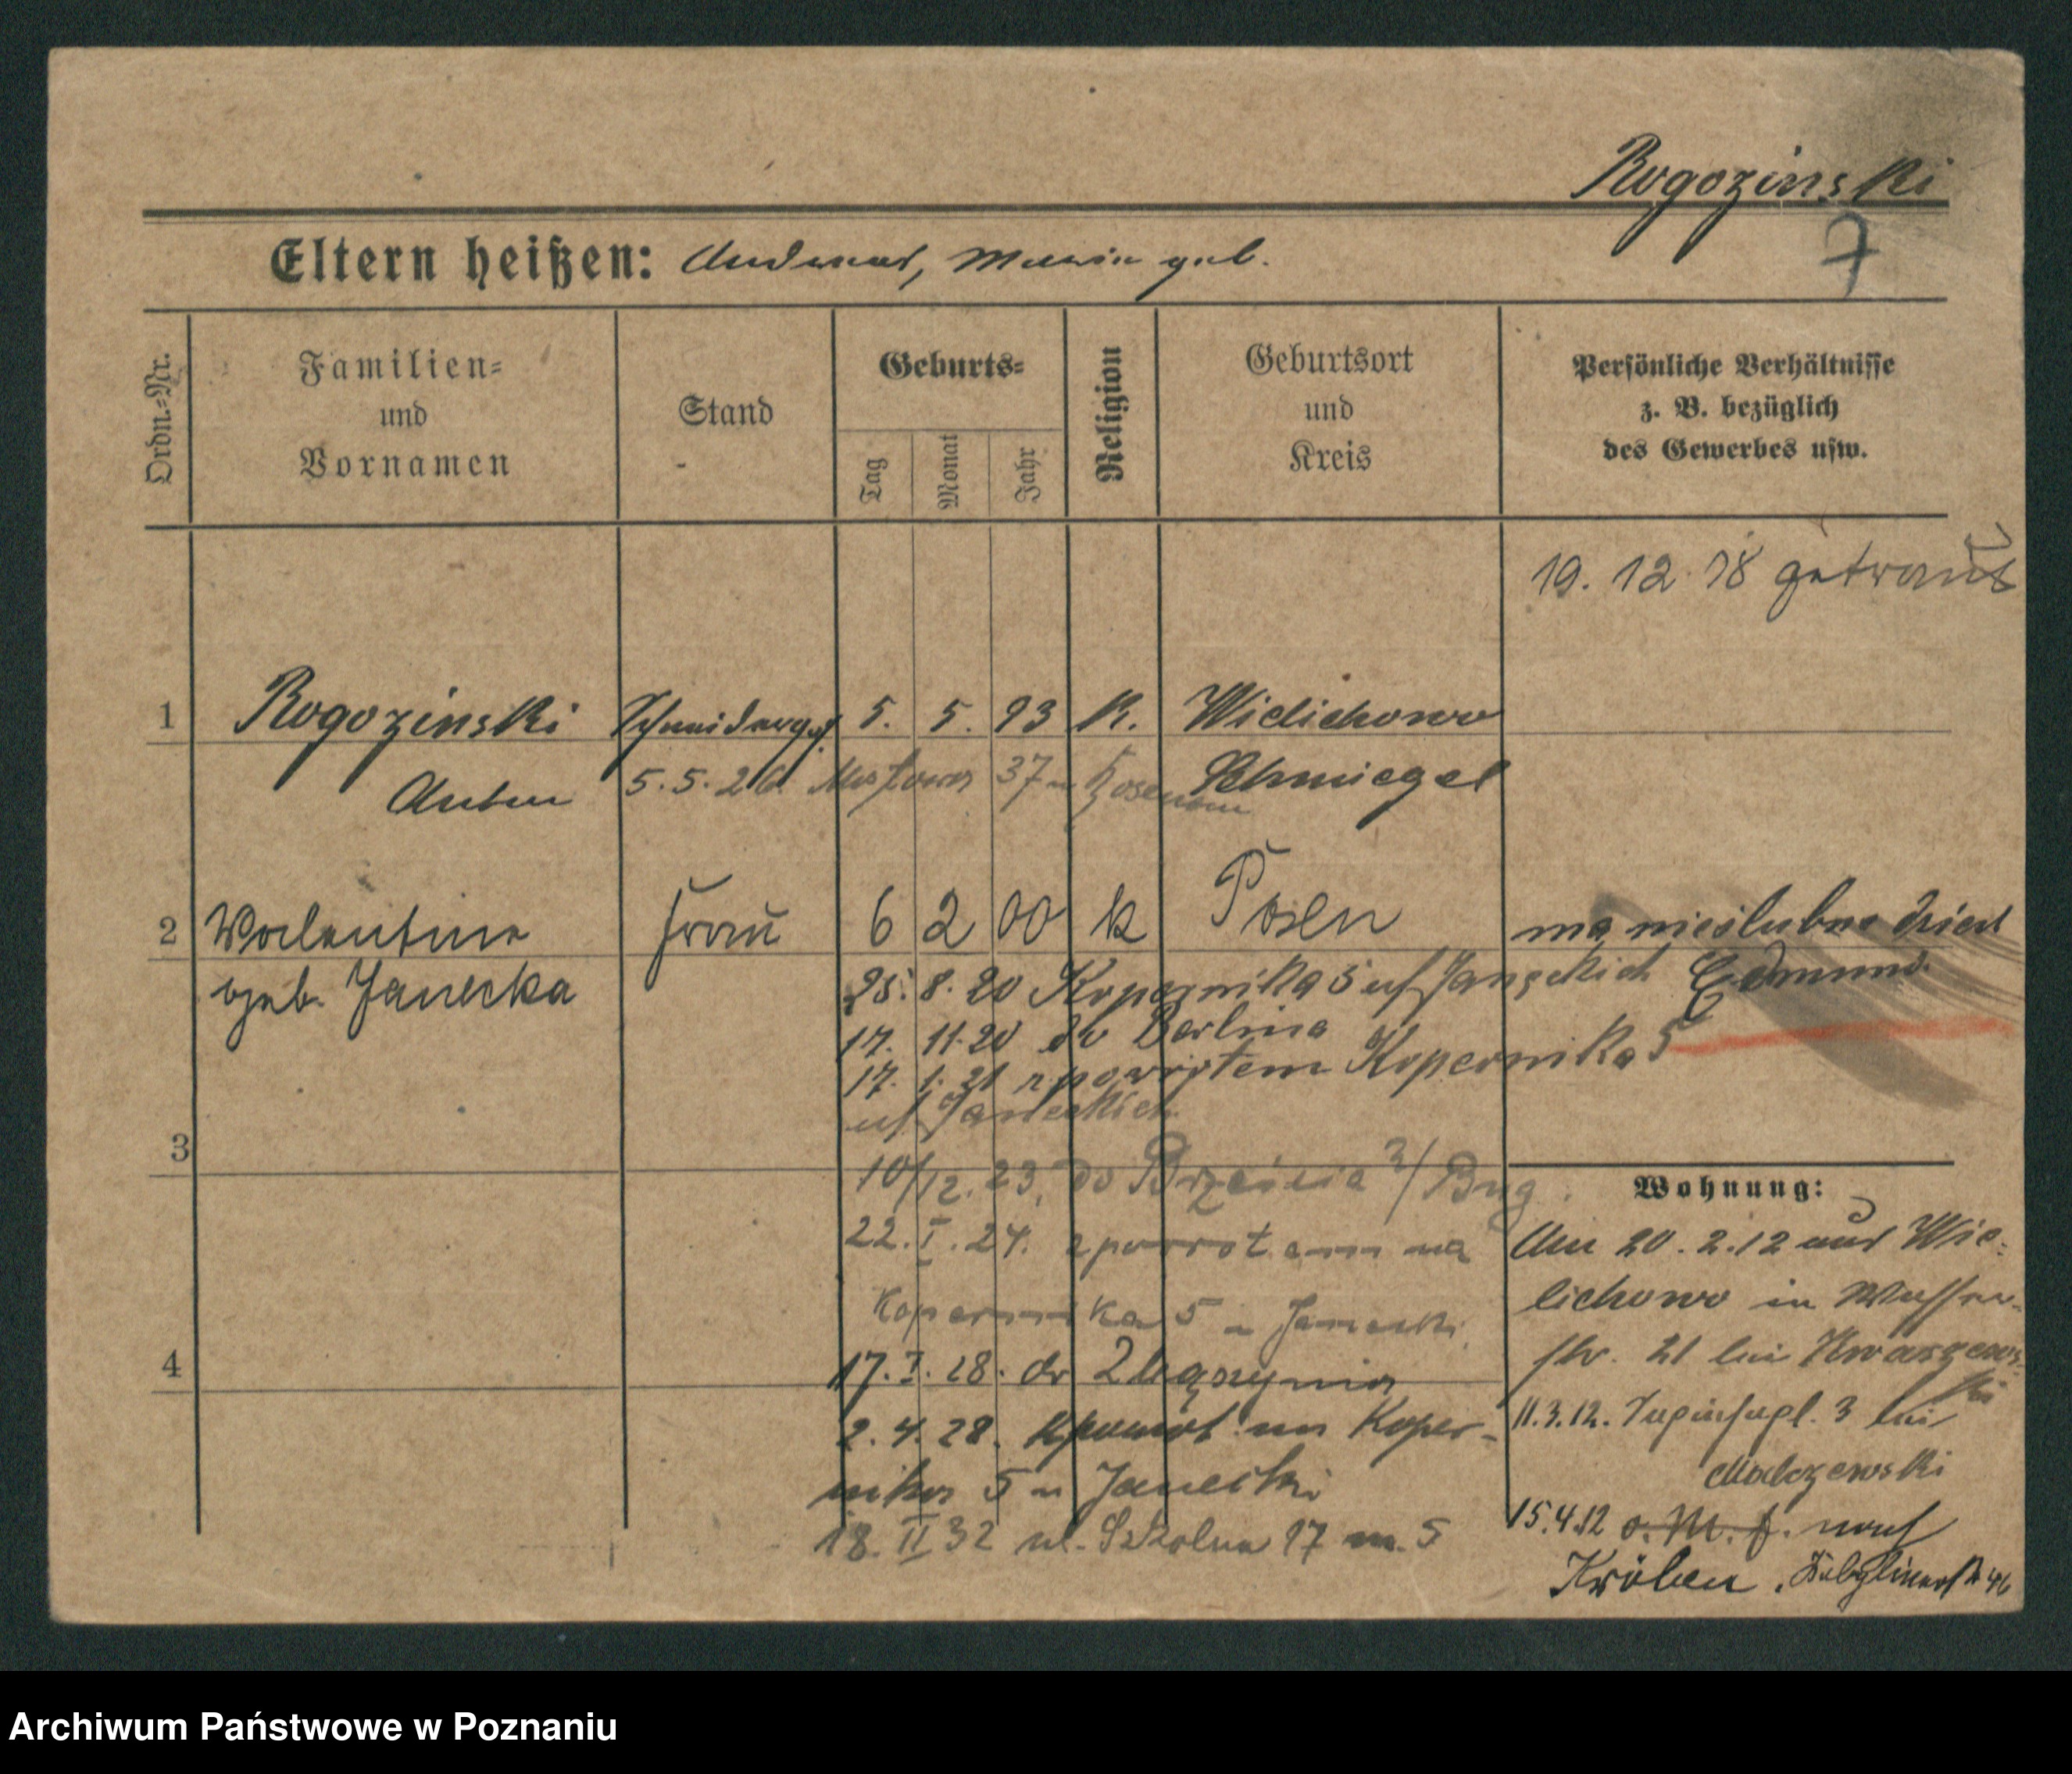 Rogozinski
7
Eltern heißen: Andreas, Maria geb.
Ordn.=Nr.
Familien=
und
Vornamen
Stand
Geburts=
Tag
Monat
Jahr
Religion
Geburtsort
und
Kreis
Persönliche Verhältnisse
z. B. bezüglich
des Gewerbes usw.
19. 12. 18 getraut
1 Rogozinski Schneiderges. 5. 5. 93 K. Wielichowo
Anton 5.5.26. Mostowa 37 Schmiegel
2 Walentina Frau 6 2 00 k Posen
geb. Janecka
ma nieślubne dzieci
Edmund.
25. 8. 20 Kopernika 5 Janeckich
17. 11. 20 do Berlina
17. 1. 21 z powrotem Kopernika 5
Janeckich
3
10/12. 23. do Brześcia n/Bug.
22. I. 24. z powrotem na
Kopernika 5 u Janecki
4
17. I. 28. do
2. 4. 28. z powrót na Koper-
nika 5 u Janecki
18. II 32 ul. Szkolna 17 m. 5
Wohnung:
Am 20. 2. 12 aus Wie-
lichowo in Wasser-
str. 21 bei Kwaszews-
ki
11.3.12. Sapiehapl. 3 bei
15.4.12 o. M. f. nach
Kröben.
Archiwum Państwowe w Poznaniu